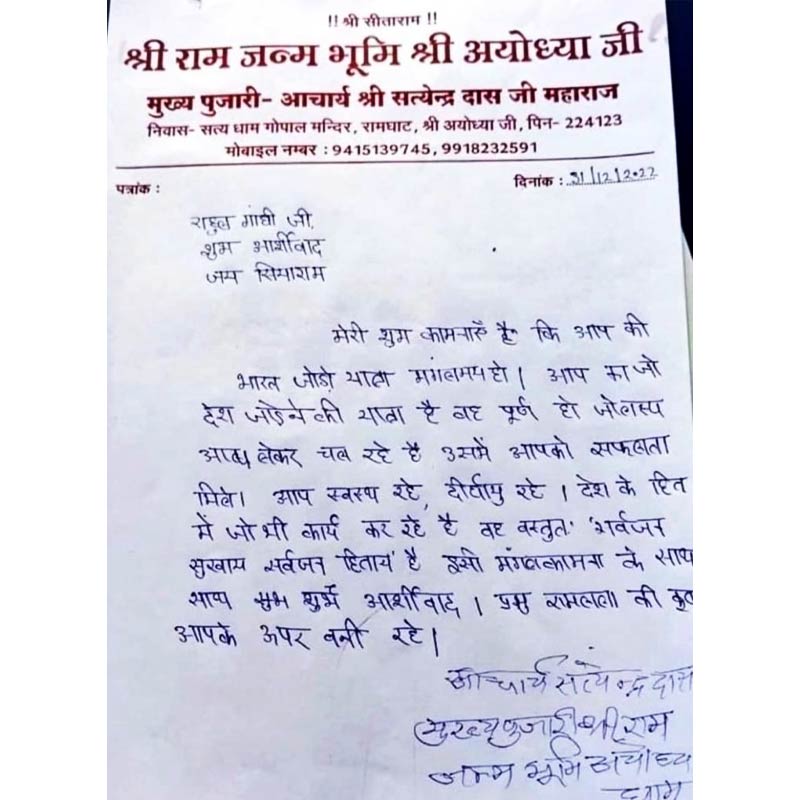 !! श्री सीताराम !!
श्री राम जन्म भूमि श्री अयोध्या जी
मुख्य पुजारी- आचार्य श्री सत्येन्द्र दास जी महाराज
निवास- सत्य धाम गोपाल मन्दिर, रामघाट, श्री अयोध्या जी, पिन- 224123
मोबाइल नम्बर : 9415139745, 9918232591
पत्रांक : दिनांक : 31/12/2022
राहुल गांधी जी,
शुभ आर्शीवाद
जय सियाराम
मेरी शुभ कामनाएँ है कि आप की
भारत जोडो यात्रा मंगलमय हो। आप का जो
देश जोडने की यात्रा है वह पूर्ण हो जो लक्ष्य
आप लेकर चल रहे है उसमें आपको सफलता
मिले। आप स्वस्थ रहे, दीर्घायु रहे। देश के हित
में जो भी कार्य कर रहे है वह वस्तुत: 'सर्वजन
सुखाय सर्वजन हिताय' है इसी मंगलकामना के साथ
साथ शुभ आर्शीवाद। प्रभु रामलला की कृपा
आपके ऊपर बनी रहे।
आचार्य सत्येन्द्र दास
मुख्य पुजारी श्री राम
जन्म भूमि अयोध्या
धाम